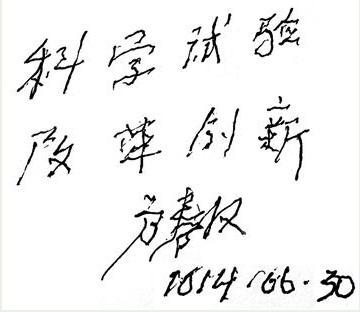 科学试验
改革创新
方春权
2014.06.30